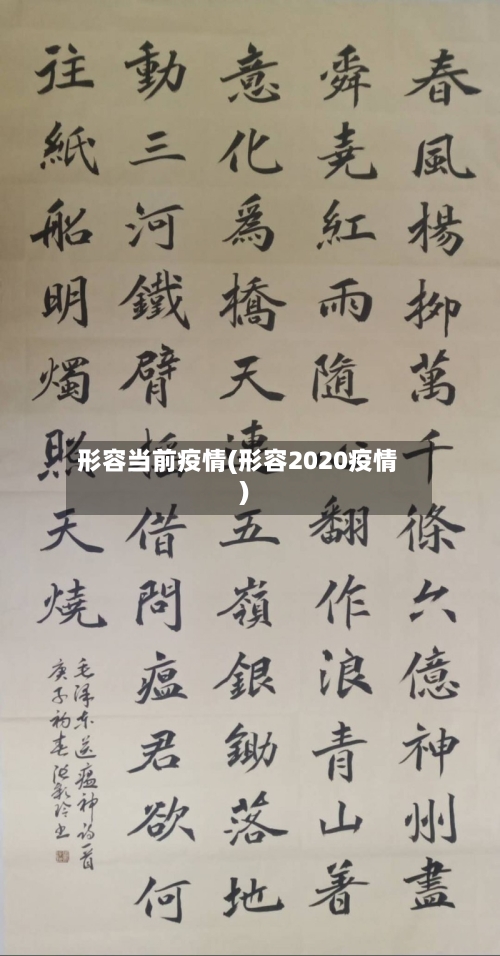 春風楊柳萬千條六億神州盡
舜堯紅雨隨翻作浪青山着
意化為橋天連五嶺銀鋤落地
動三河鐵臂搖借問瘟君欲何
往紙船明燭照天燒
毛泽东送瘟神詩一首
庚子初春
形容当前疫情(形容2020疫情
)